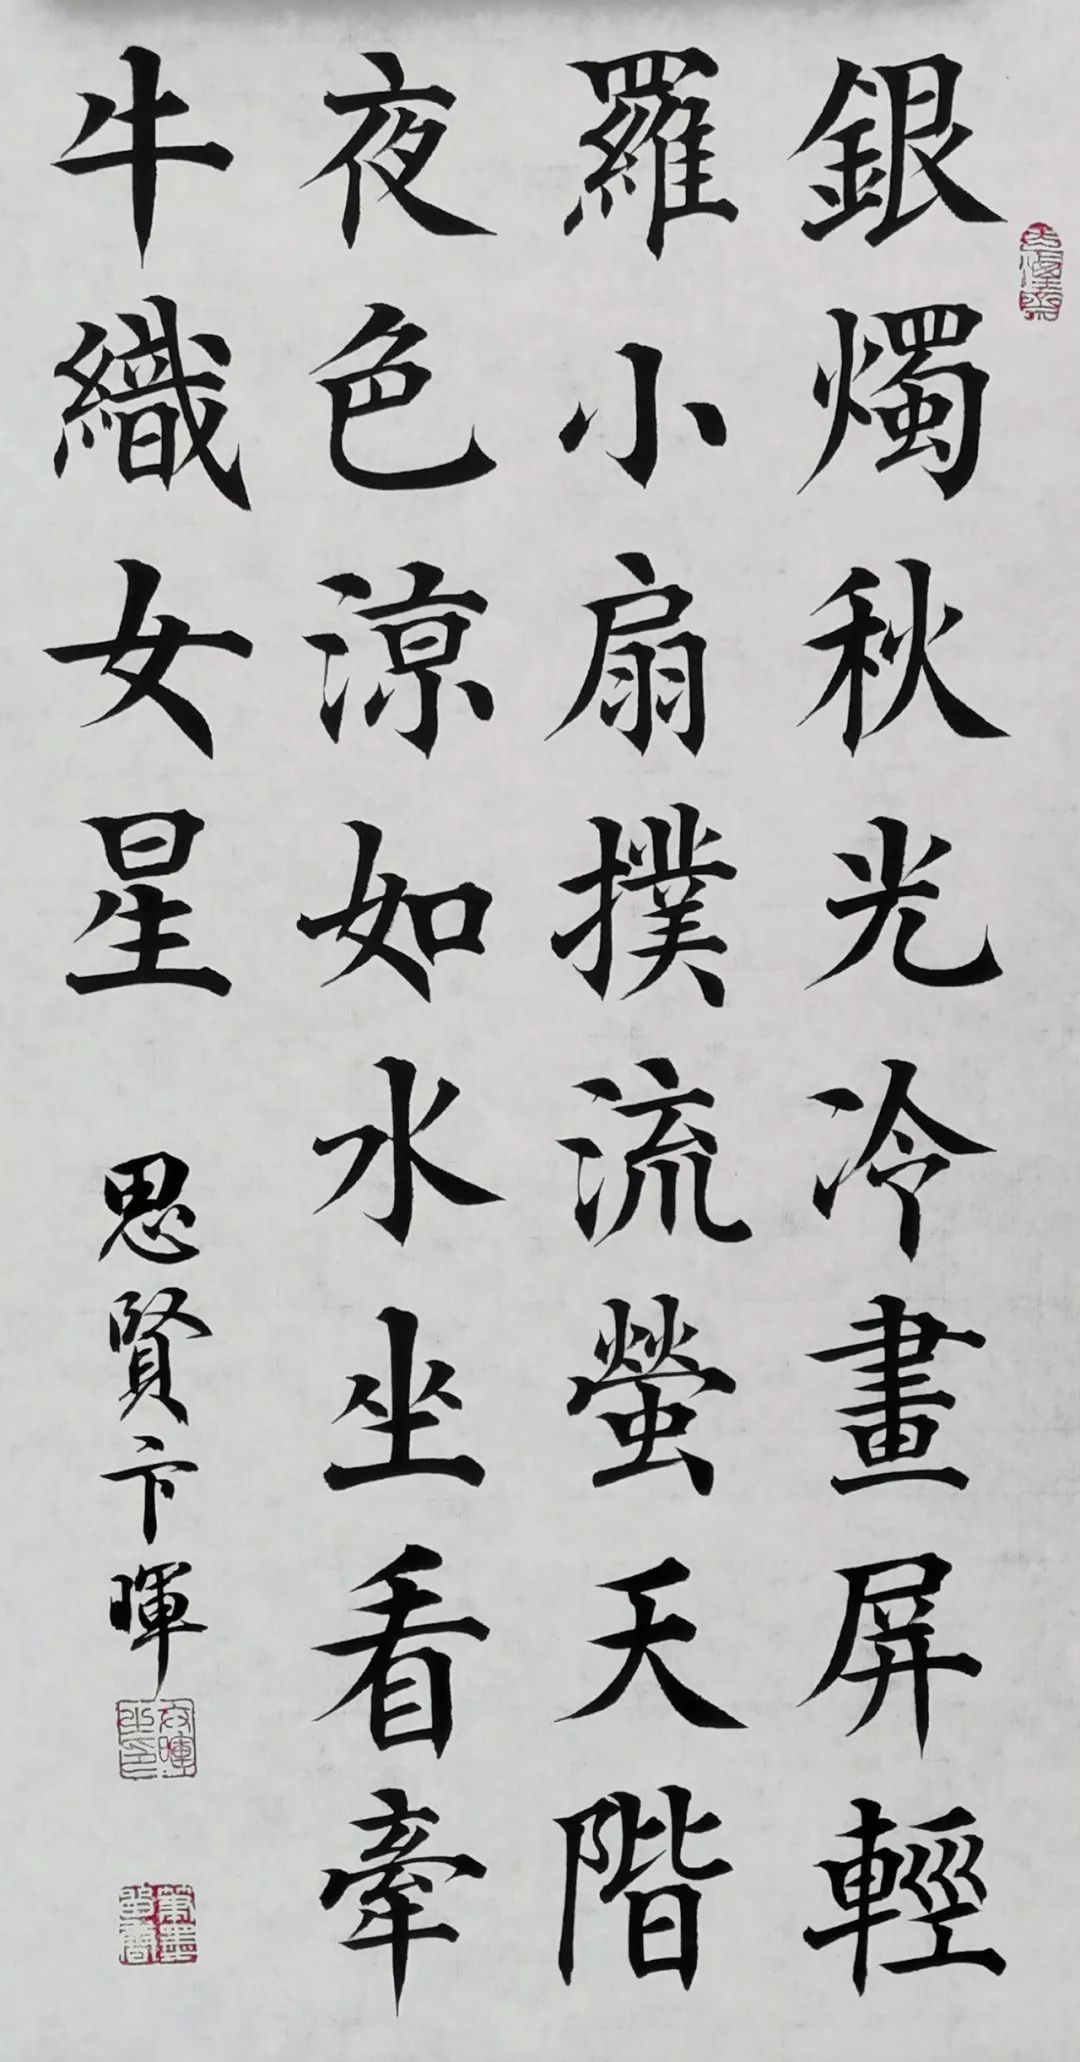 銀燭秋光冷畫屏輕
羅小扇撲流螢天階
夜色涼如水坐看牽
牛織女星
思賢卞暉